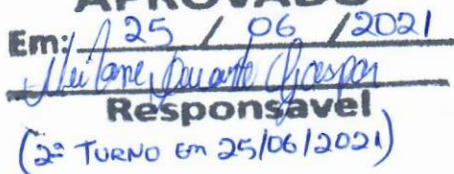 APROVADO
Em: 25 / 06 / 2021
Duarte Gaspar
Responsavel
(2º TURNO Em 25/06/2021)